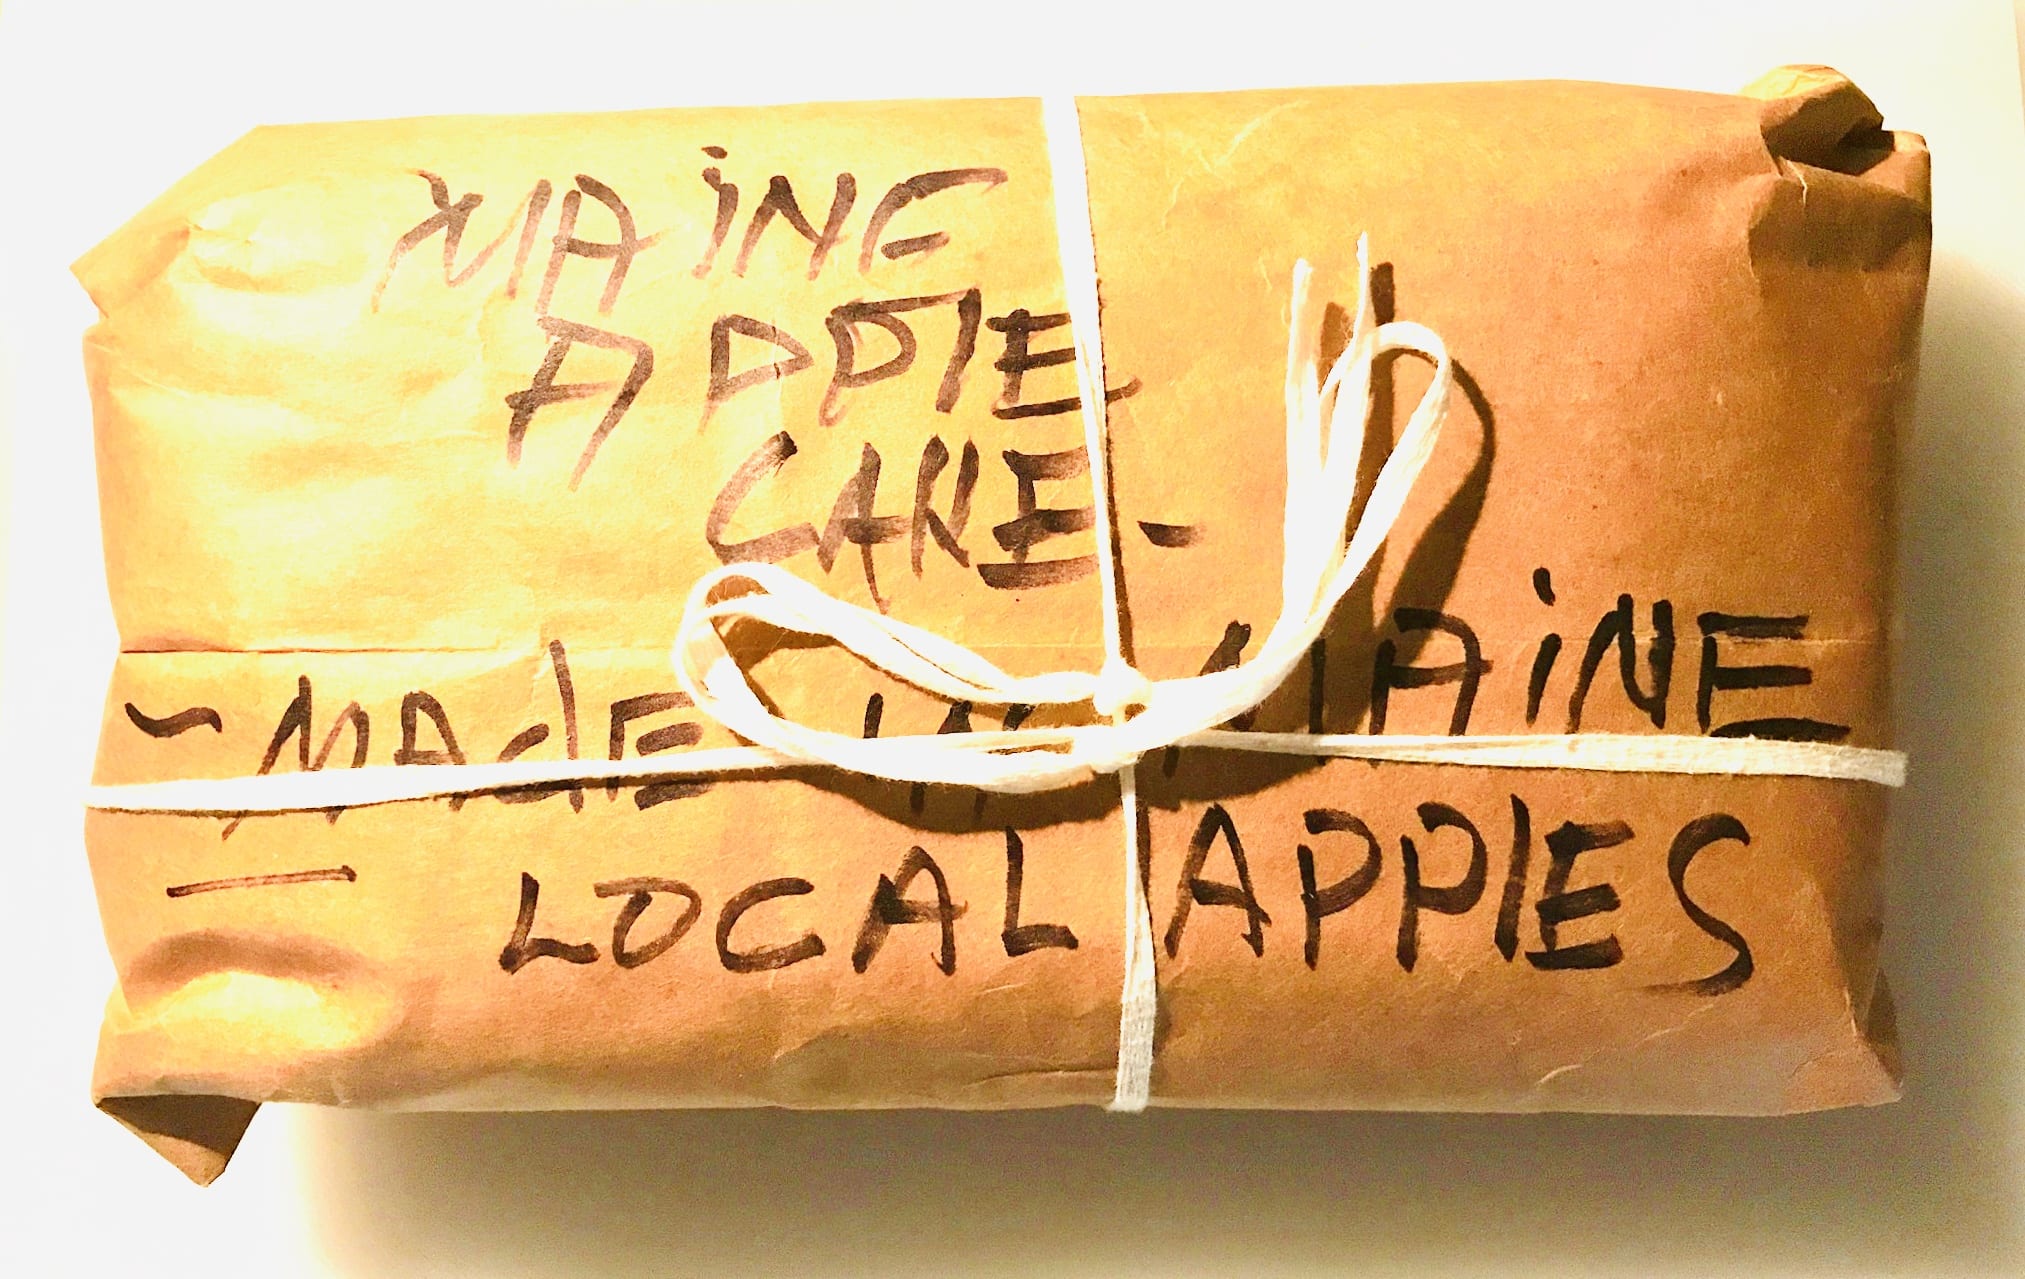 MAiNE
APPlE
CAKE -
~ MAdE IN MAiNE
— LOCAL APPlES